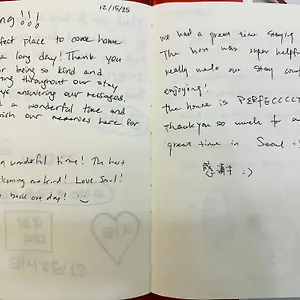 12/15/25
ng!!!
fect place to come home
a long day! Thank you
r being so kind and
ing throughout our stay
ys answering our messages.
d a wonderful time and
rish our memories here for
n wonderful time! The host
lcoming and kind! Love Seoul!
back one day!
we had a great time staying
The host was super helpful
really made our stay
enjoying!
the house is PERFECCCCT
Thank you so much for a
great time in Seoul :)
感謝 :)
안녕하세요